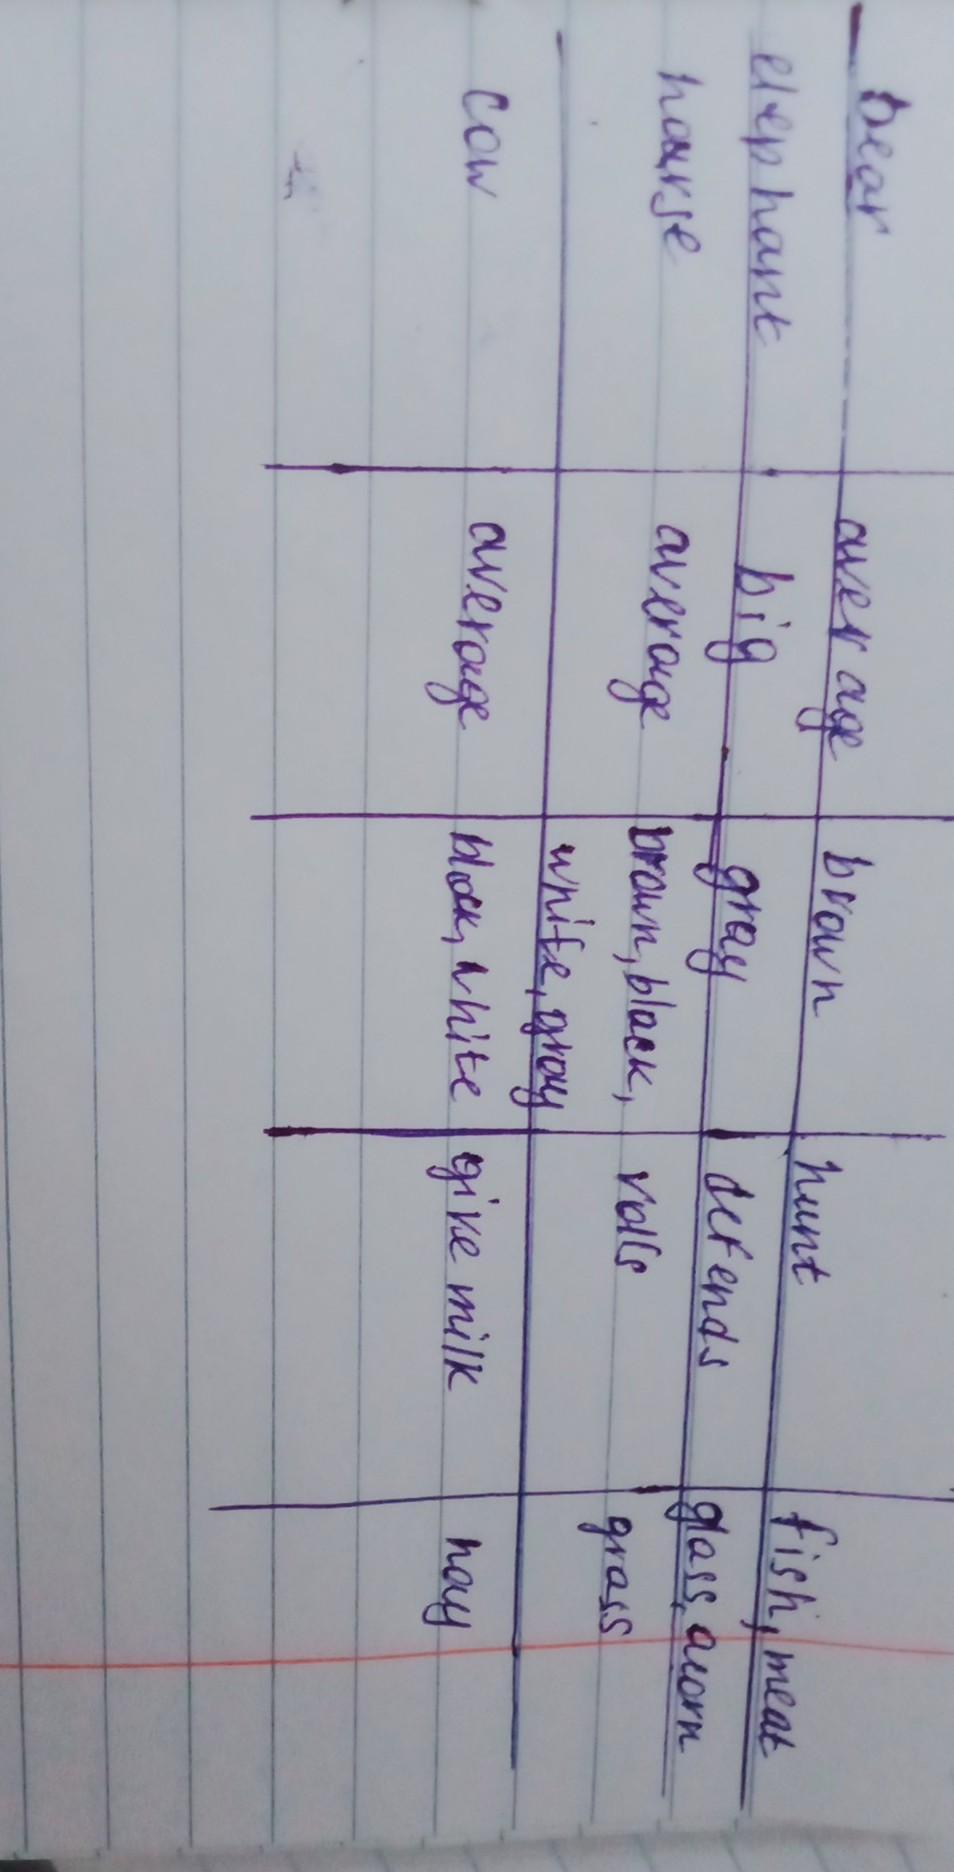 bear average brown hunt fish, meat
elephant big gray defends glass, acorn
hourse average brown, black, rolls grass
white, gray
cow average black, white give milk hay